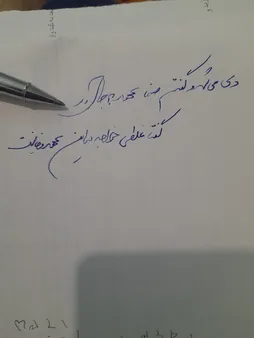 دی می‌شد و گفتم صنما عهد به جای آر
گفتا غلطی خواجه در این عهد وفا نیست